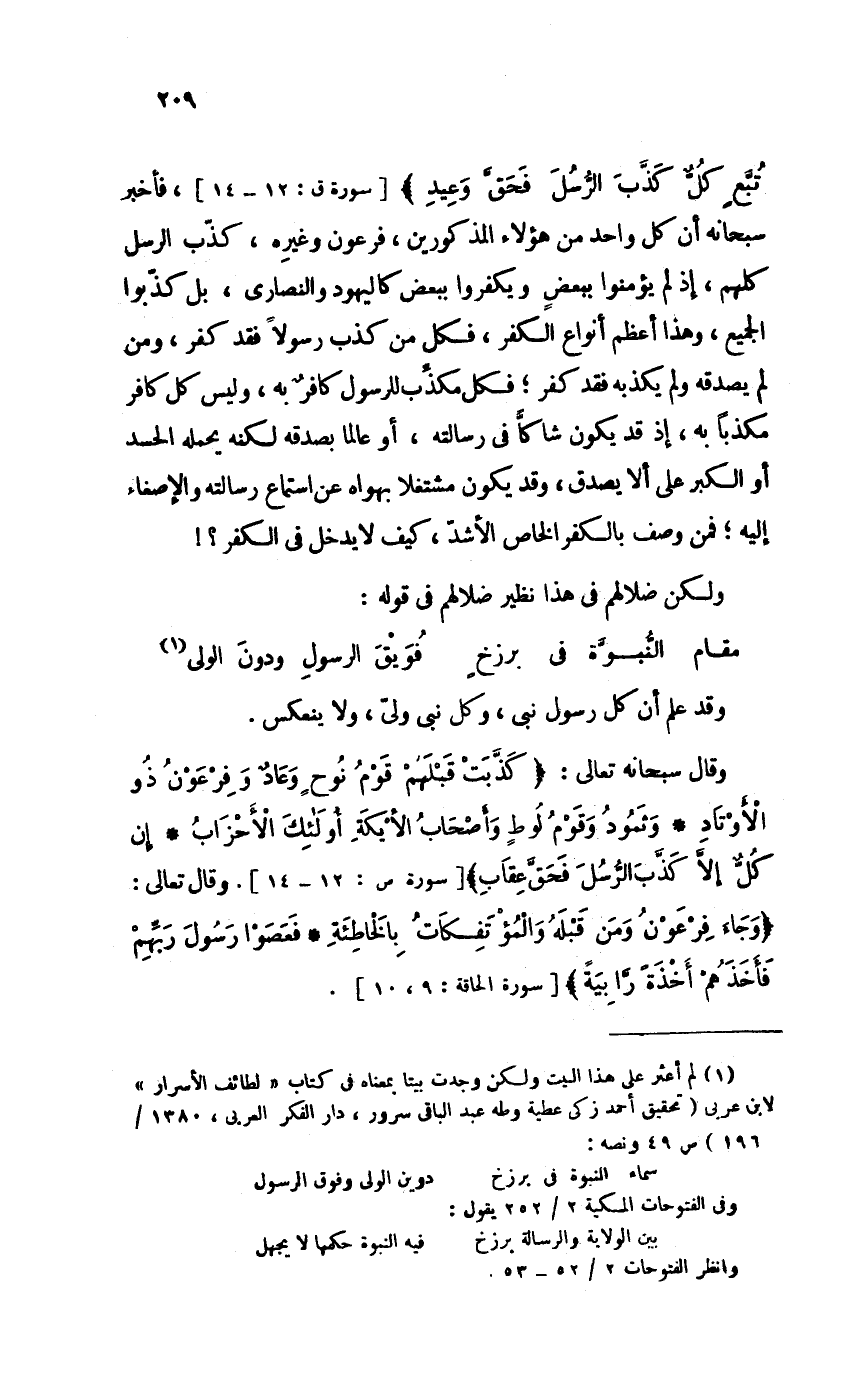 ٢٠٩
تُبَّعٍ كُلٌّ كَذَّبَ الرُّسُلَ فَحَقَّ وَعِيدِ ﴾ [ سورة ق : ١٢ – ١٤ ] ، فأخبر
سبحانه أن كل واحد من هؤلاء المذكورين ، فرعون وغيرِه ، كذّب الرسل
كلهم ، إذ لم يؤمنوا ببعضٍ ويكفروا ببعض كاليهود والنصارى ، بل كذّبوا
الجميع ، وهذا أعظم أنواع الكفر ، فكل من كذب رسولاً فقد كفر ، ومن
لم يصدقه ولم يكذبه فقد كفر ؛ فكل مكذِّب للرسول كافرٌ به ، وليس كل كافر
مكذباً به ، إذ قد يكون شاكاًّ فى رسالته ، أو عالما بصدقه لكنه يحمله الحسد
أو الكبر على ألا يصدق ، وقد يكون مشتغلا بهواه عن استماع رسالته والإصغاء
إليه ؛ فمن وصف بالكفر الخاص الأشدّ ، كيف لا يدخل فى الكفر ؟!
ولكن ضلالهم فى هذا نظير ضلالهم فى قوله :
مقـام النُّبـــوَّة فى برزخٍ فُوَيْقَ الرسولِ ودونَ الولى(١)
وقد علم أن كل رسول نبى ، وكل نبى ولىّ ، ولا ينعكس .
وقال سبحانه تعالى : ﴿ كَذَّبَتْ قَبْلَهُمْ قَوْمُ نُوحٍ وَعَادٌ وَفِرْعَوْنُ ذُو
الْأَوْتَادِ * وَثَمُودُ وَقَوْمُ لُوطٍ وَأَصْحَابُ الأَيْكَةِ أُولَٰئِكَ الْأَحْزَابُ * إِن
كُلٌّ إِلاَّ كَذَّبَ الرُّسُلَ فَحَقَّ عِقَابِ ﴾ [ سورة ص : ١٢ – ١٤ ] . وقال تعالى :
﴿ وَجَاءَ فِرْعَوْنُ وَمَن قَبْلَهُ وَالْمُؤْتَفِكَاتُ بِالْخَاطِئَةِ * فَعَصَوْا رَسُولَ رَبِّهِمْ
فَأَخَذَهُمْ أَخْذَةً رَّابِيَةً ﴾ [ سورة الحاقة : ٩ ، ١٠ ] .
(١) لم أعثر على هذا البيت ولكن وجدت بيتا بمعناه فى كتاب « لطائف الأسرار »
لابن عربى ( تحقيق أحمد زكى عطية وطه عبد الباقى سرور ، دار الفكر العربى ، ١٣٨٠ /
١٩٦ ) ص ٤٩ ونصه :
سماء النبوة فى برزخ دوين الولى وفوق الرسول
وفى الفتوحات المكية ٢ / ٢٥٢ يقول :
بين الولاية والرسالة برزخ فيه النبوة حكمها لا يجهل
وانظر الفتوحات ٢ / ٥٢ – ٥٣ .